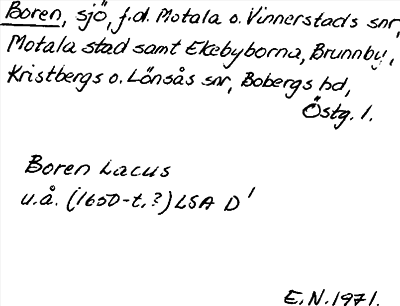 Boren, sjö, f.d. Motala o. Vinnerstads snr,
Motala stad samt Ekebyborna, Brunnby,
Kristbergs o. Lönsås snr, Bobergs hd,
Östg. l.
Boren Lacus
u.å. (1650-t.?) LSA D'
E.N. 1971.